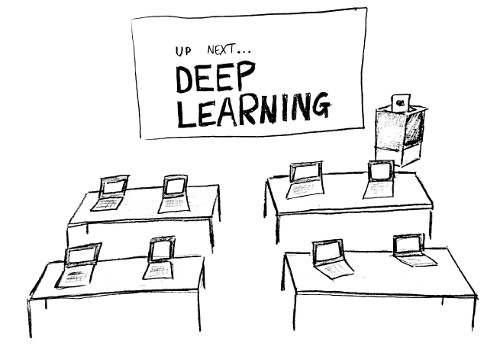 UP NEXT...
DEEP
LEARNING